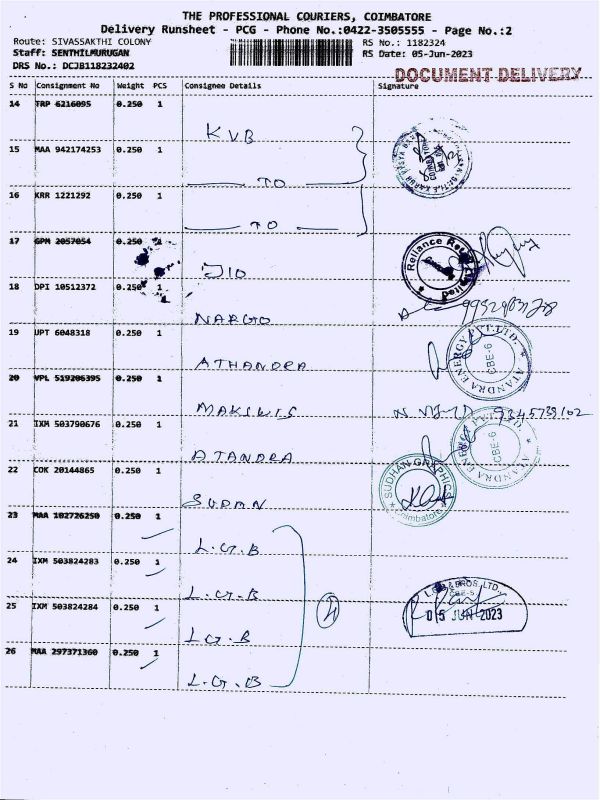 THE PROFESSIONAL COURIERS, COIMBATORE
Delivery Runsheet - PCG - Phone No.:0422-3505555 - Page No.:2
Route: SIVASSAKTHI COLONY RS No.: 1182324
Staff: SENTHILMURUGAN RS Date: 05-Jun-2023
DRS No.: DCJB118232402
DOCUMENT DELIVERY
S No Consignment No Weight PCS Consignee Details Signature
14 TRP 6216095 0.250 1
KVB
15 MAA 942174253 0.250 1
TO
16 KRR 1221292 0.250 1
TO
17 GPM 2057054 0.250 1
JIO
Reliance Retail Limited
18 DPI 10512372 0.250 1
NARGO
19 UPT 6048318 0.250 1
ATHANDRA
ATANDRA ENERGY PVT.LTD. CBE-6
20 VPL 519206395 0.250 1
MAKSWIS 9345739102
21 IXM 503790676 0.250 1
ATANDRA
ATANDRA ENERGY PVT.LTD. CBE-6
22 COK 20144865 0.250 1
SUDAN
SUDHAN GRAPHICS Coimbatore
23 MAA 102726250 0.250 1
L.G.B
24 IXM 503824283 0.250 1
L.G.B
4
25 IXM 503824284 0.250 1
L.G.B
L.G.B & BROS. LTD.,
CBE-5
05 JUN 2023
26 MAA 297371360 0.250 1
L.G.B